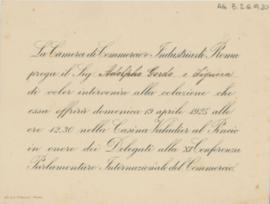 AG 3.2.6.9.20
La Camera di Commercio e Industria di Roma
prega il Sig. Adolpho Gordo e Signora
di voler intervenire alla colazione che
essa offrirà domenica 19 aprile 1925 alle
ore 12.30 nella Casina Valadier al Pincio
in onore dei Delegati alla XI Conferenza
Parlamentare Internazionale del Commercio.